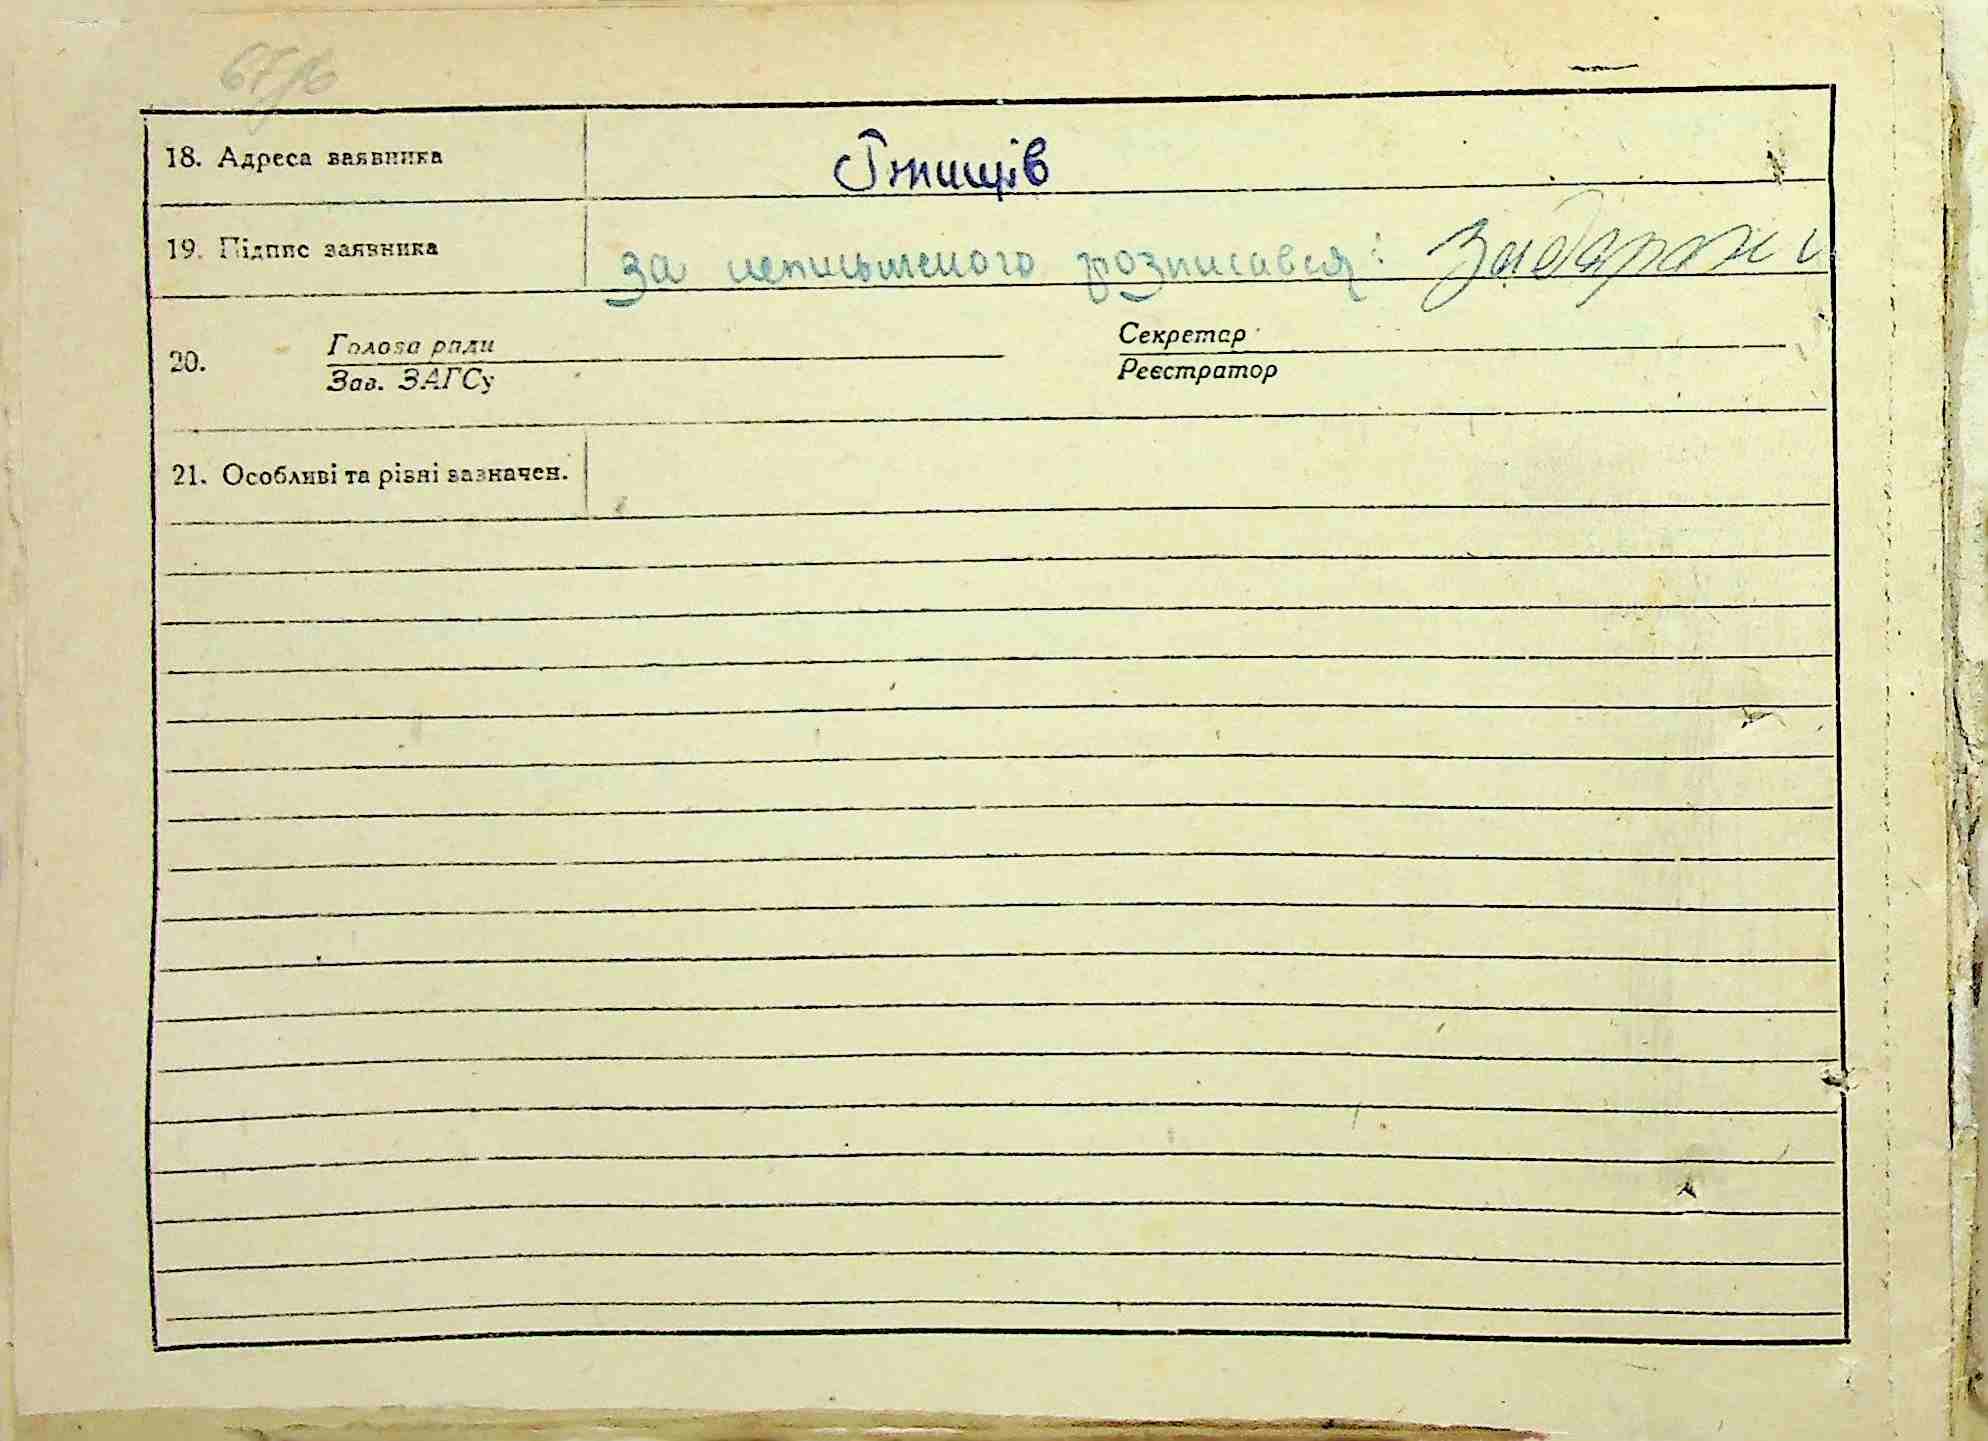 18. Адреса заявника
19. Підпис заявника за неписьменого розписався:
20. Голова ради Секретар
Зав. ЗАГСу Реєстратор
21. Особливі та різні зазначен.